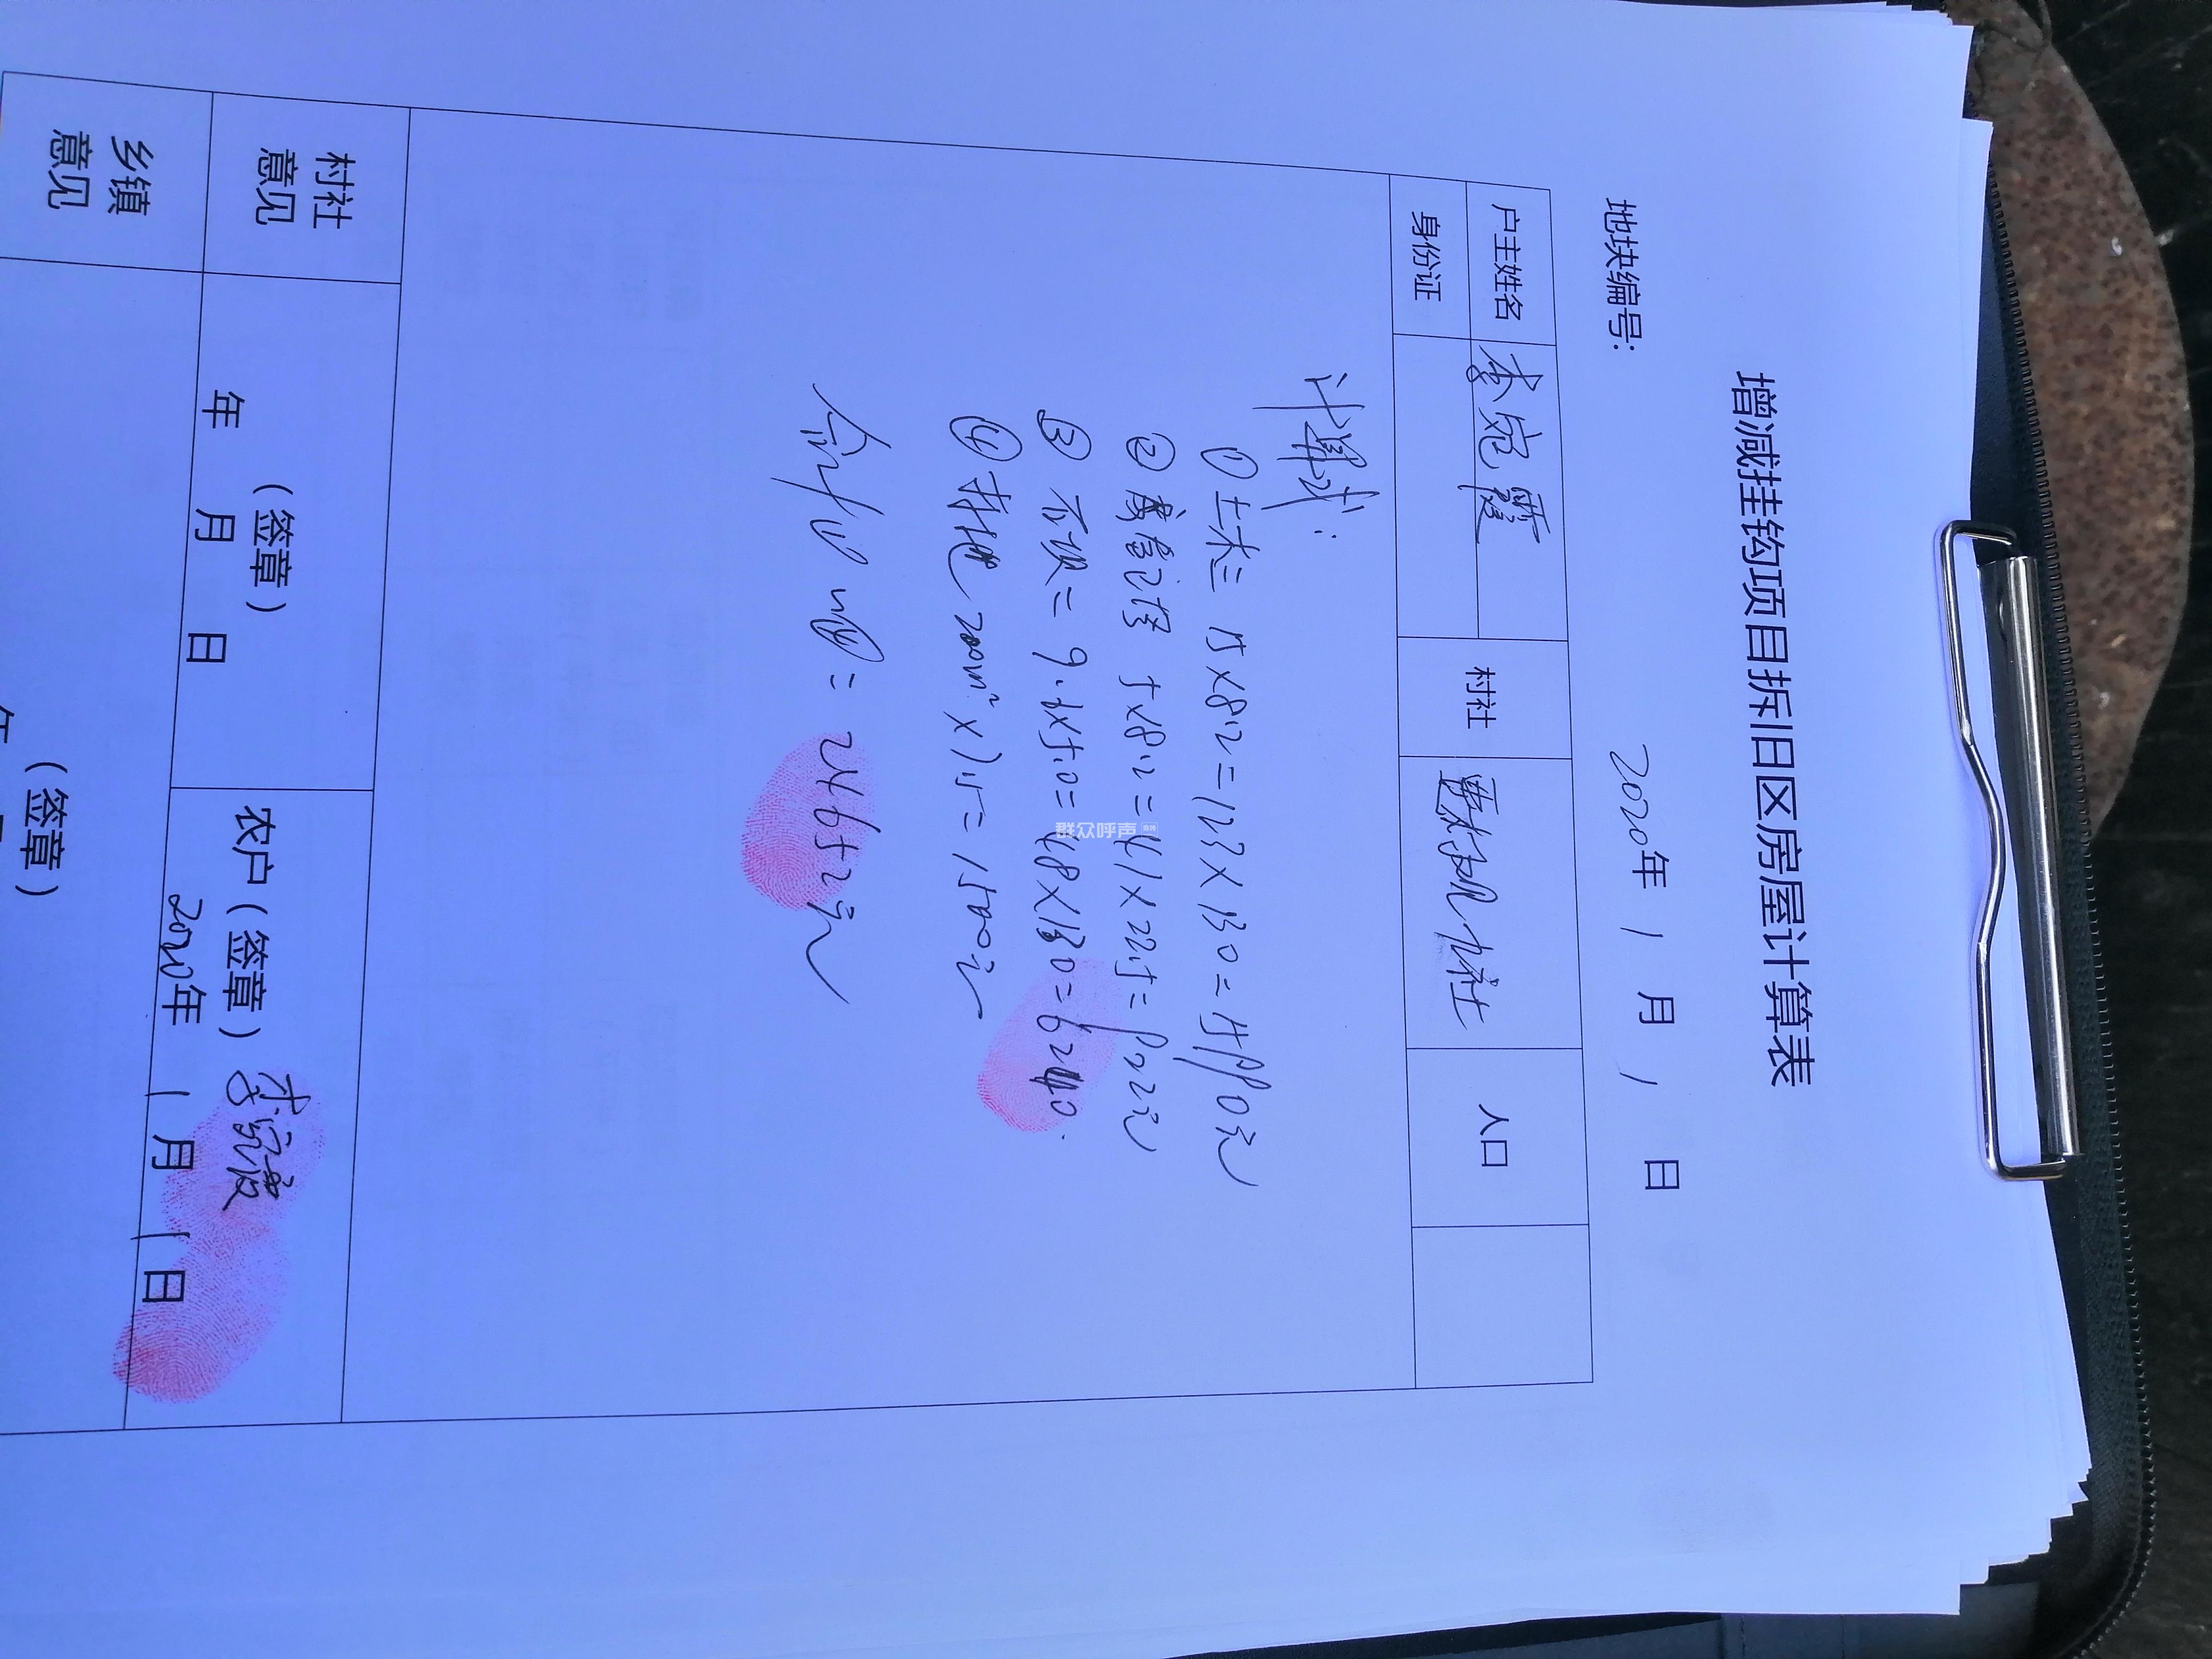 增减挂钩项目拆旧区房屋计算表
地块编号:
2020年 1 月 1 日
户主姓名 李宛霞 村社 九社 人口
身份证
计算式:
① 土木= 15×8.2=123×130=15990元
② 5×8.2=41×225=9225元
③ 9.6×5.0=48×130=6240.
④ 200m²×7.5=1500元
合计 = 24652元
村社
意见
(签章)
年 月 日
农户(签章) 李宛霞
2020年 1 月 1 日
乡镇
意见
(签章)
年
群众呼声